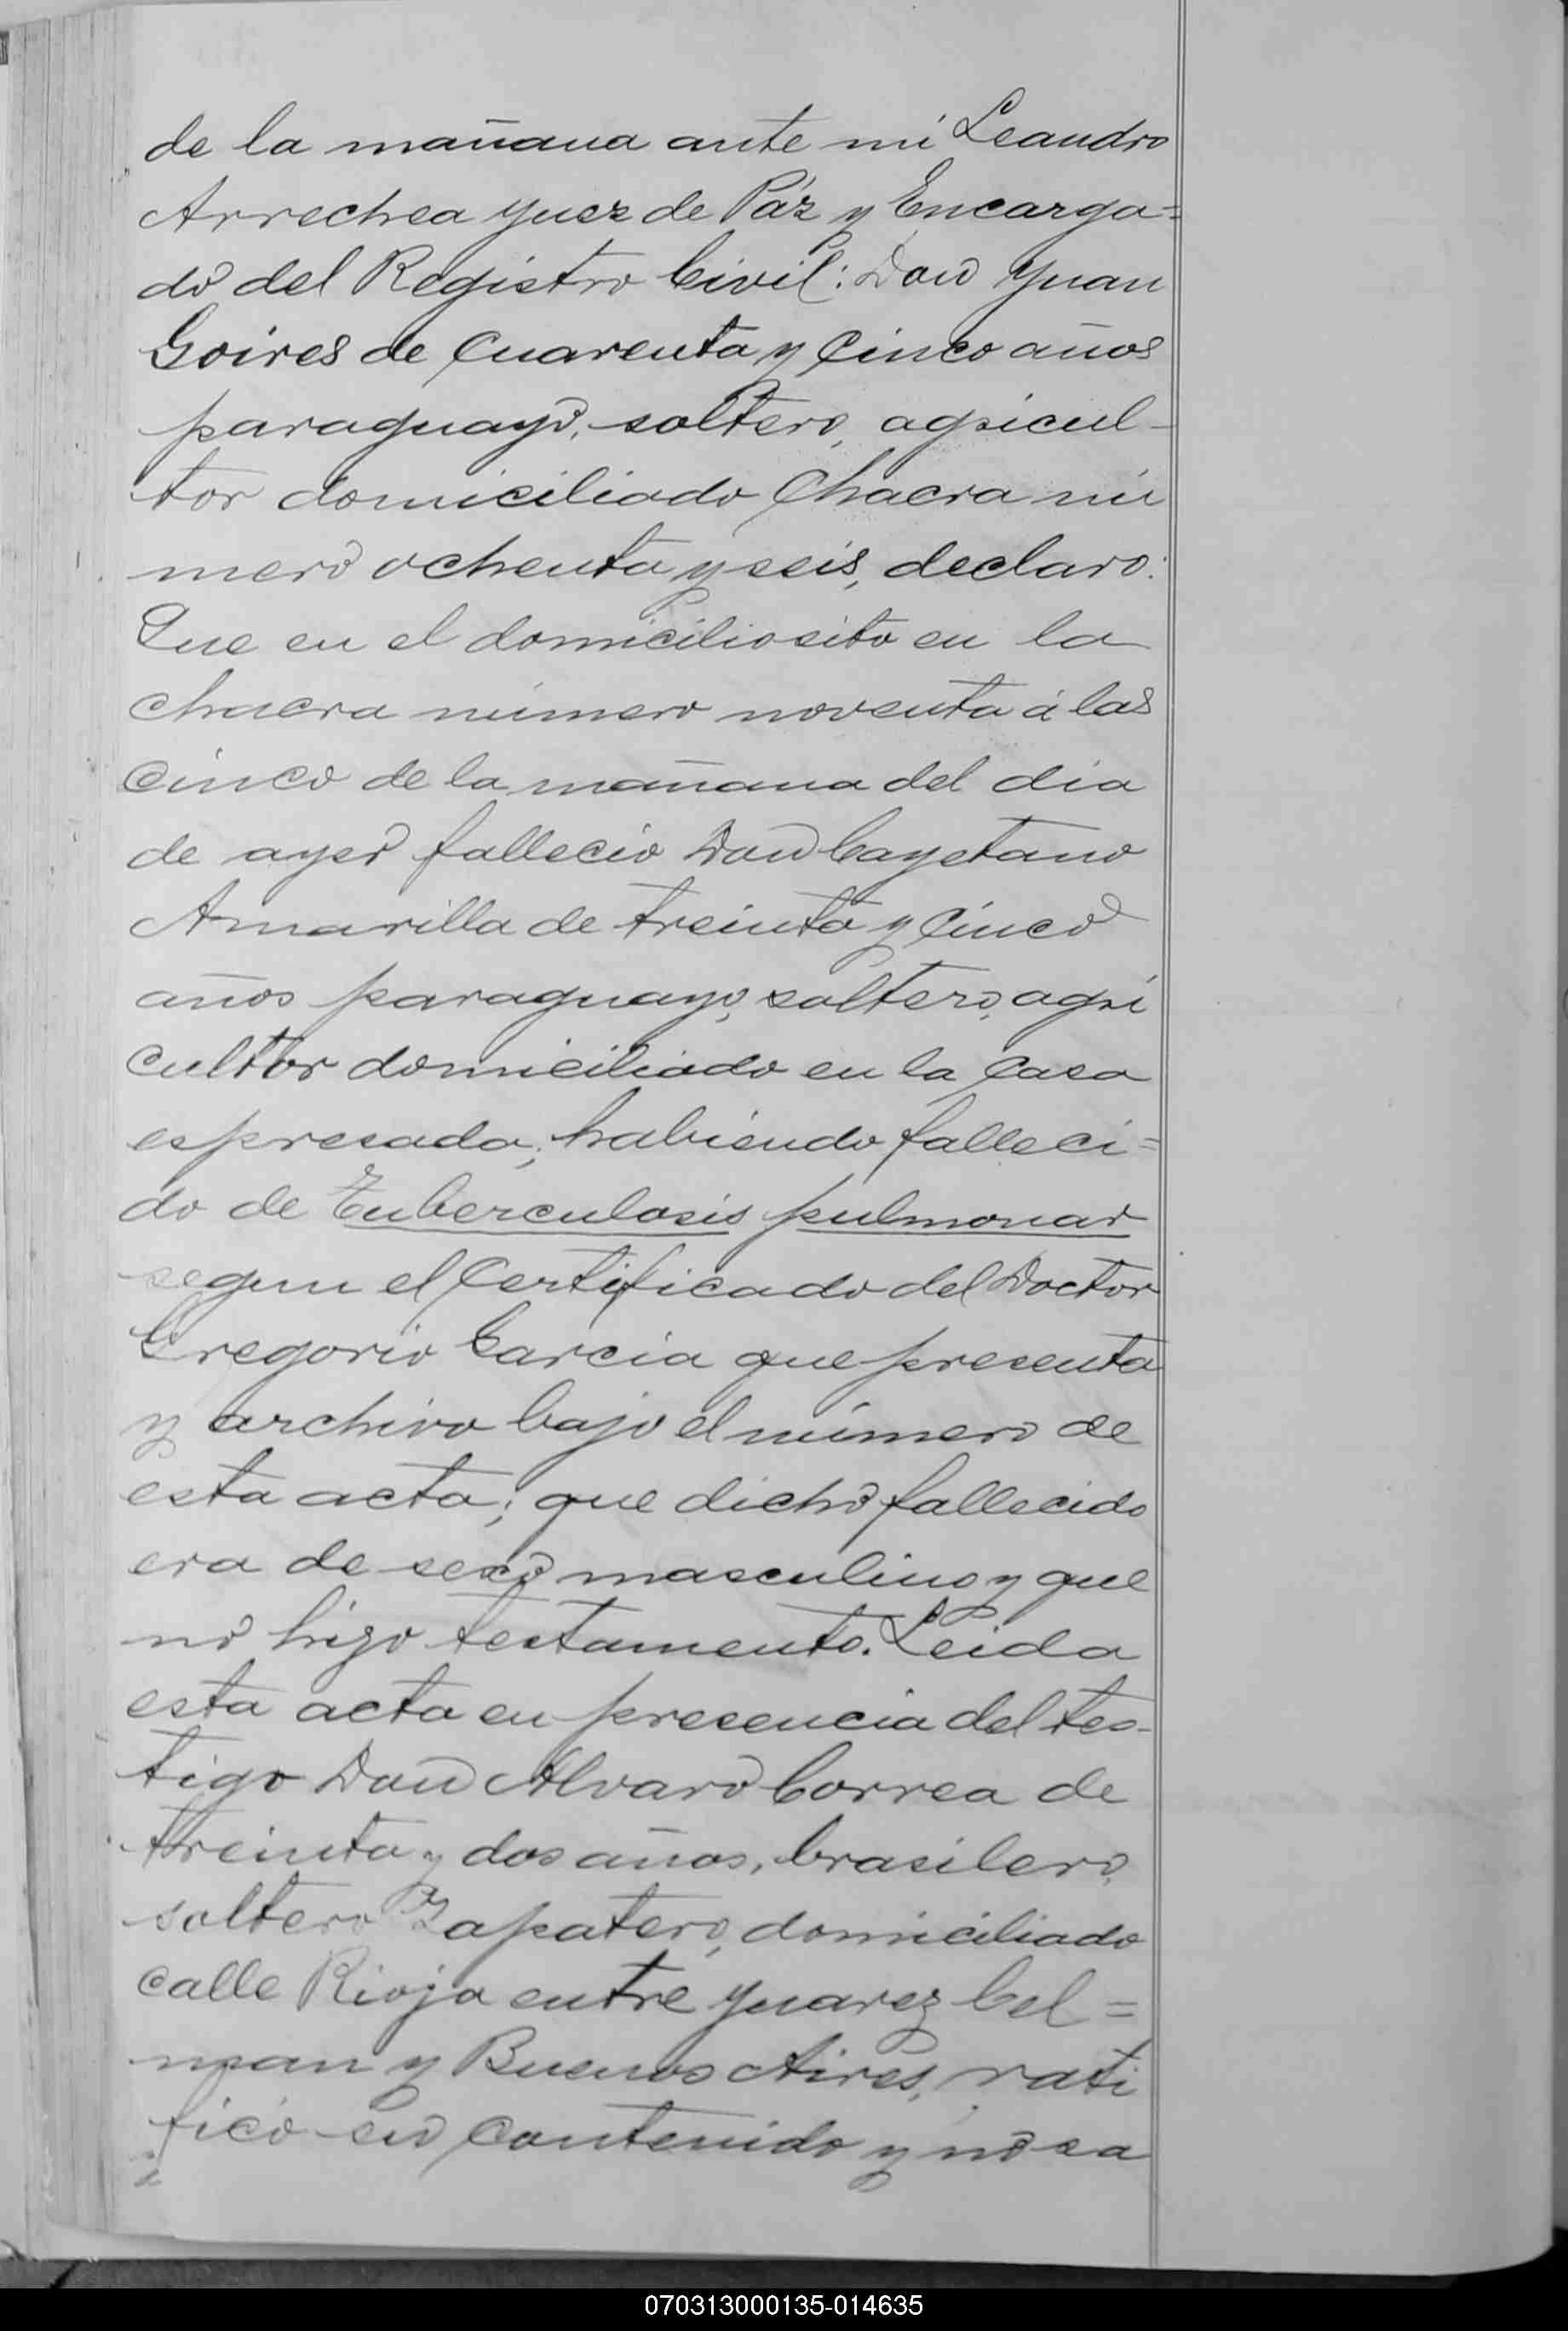 de la mañana ante mi Leandro
Arrechea Juez de Páz y Encarga=
do del Registro Civil: Don Juan
Goires de Cuarenta y Cinco años
paraguayo, soltero, agricul-
tor domiciliado Chacra nú
mero ochenta y seis, declaro:
Que en el domicilio sito en la
chacra número noventa á las
Cinco de la mañana del dia
de ayer fallecio Don Cayetano
Amarilla de treinta y Cinco
años paraguayo, soltero, agri
cultor domiciliado en la Casa
espresada; habiendo falleci=
do de Tuberculosis pulmonar
segun el Certificado del Doctor
Gregorio Garcia que presenta
y archivo bajo el número de
esta acta; que dicho fallecido
era de sexo masculino y que
no hizo testamento. Leida
esta acta en presencia del tes-
tigo Don Alvaro Correa de
treinta y dos años, brasilero,
soltero Zapatero, domiciliado
calle Rioja entre Juarez Cel=
man y Buenos Aires, rati
ficó su Contenido y no sa
070313000135-014635